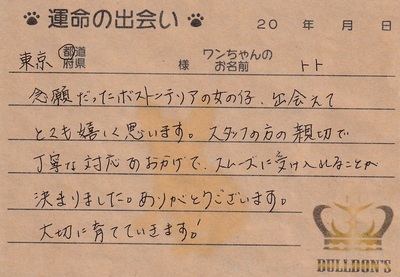 運命の出会い 20 年 月 日
東京 都道府県 様 ワンちゃんのお名前 トト
念願だったボストンテリアの女の仔、出会えて
とても嬉しく思います。スタッフの方の親切で
丁寧な対応のおかげで、スムーズに受け入れることが
決まりました。ありがとうございます。
大切に育てていきます!
BULLDON'S